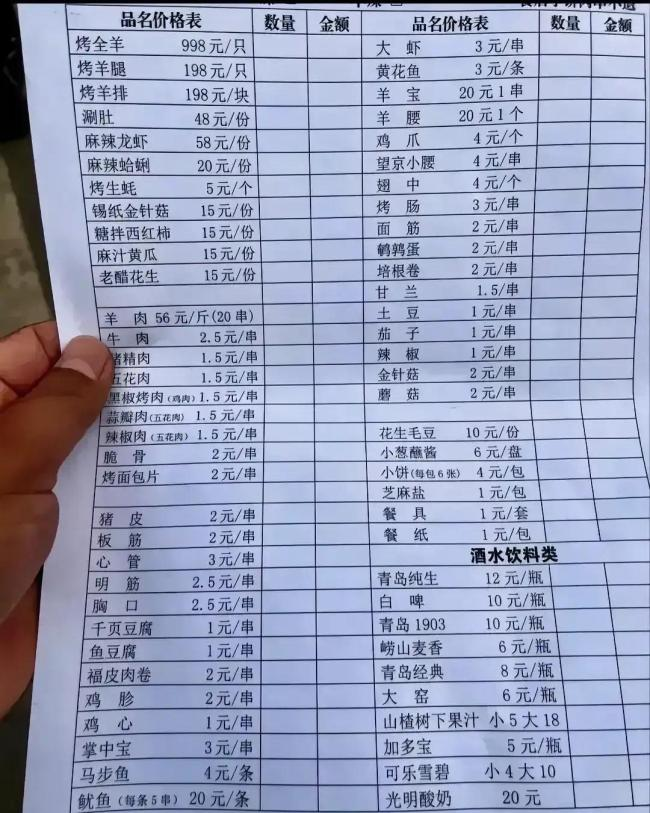 品名价格表 数量 金额
烤全羊 998元/只
烤羊腿 198元/只
烤羊排 198元/块
涮肚 48元/份
麻辣龙虾 58元/份
麻辣蛤蜊 20元/份
烤生蚝 5元/个
锡纸金针菇 15元/份
糖拌西红柿 15元/份
麻汁黄瓜 15元/份
老醋花生 15元/份
羊肉 56元/斤(20串)
牛肉 2.5元/串
猪精肉 1.5元/串
五花肉 1.5元/串
黑椒烤肉(鸡肉) 1.5元/串
蒜瓣肉(五花肉) 1.5元/串
辣椒肉(五花肉) 1.5元/串
脆骨 2元/串
烤面包片 2元/串
猪皮 2元/串
板筋 2元/串
心管 3元/串
明筋 2.5元/串
胸口 2.5元/串
千页豆腐 1元/串
鱼豆腐 1元/串
福皮肉卷 2元/串
鸡胗 2元/串
鸡心 1元/串
掌中宝 3元/串
马步鱼 4元/条
鱿鱼(每条5串) 20元/条
品名价格表 数量 金额
大虾 3元/串
黄花鱼 3元/条
羊宝 20元1串
羊腰 20元1个
鸡爪 4元/个
望京小腰 4元/串
翅中 4元/个
烤肠 3元/串
面筋 2元/串
鹌鹑蛋 2元/串
培根卷 2元/串
甘兰 1.5/串
土豆 1元/串
茄子 1元/串
辣椒 1元/串
金针菇 2元/串
蘑菇 2元/串
花生毛豆 10元/份
小葱蘸酱 6元/盘
小饼(每包6张) 4元/包
芝麻盐 1元/包
餐具 1元/套
餐纸 1元/包
酒水饮料类
青岛纯生 12元/瓶
白啤 10元/瓶
青岛1903 10元/瓶
崂山麦香 6元/瓶
青岛经典 8元/瓶
大窑 6元/瓶
山楂树下果汁 小5大18
加多宝 5元/瓶
可乐雪碧 小4大10
光明酸奶 20元